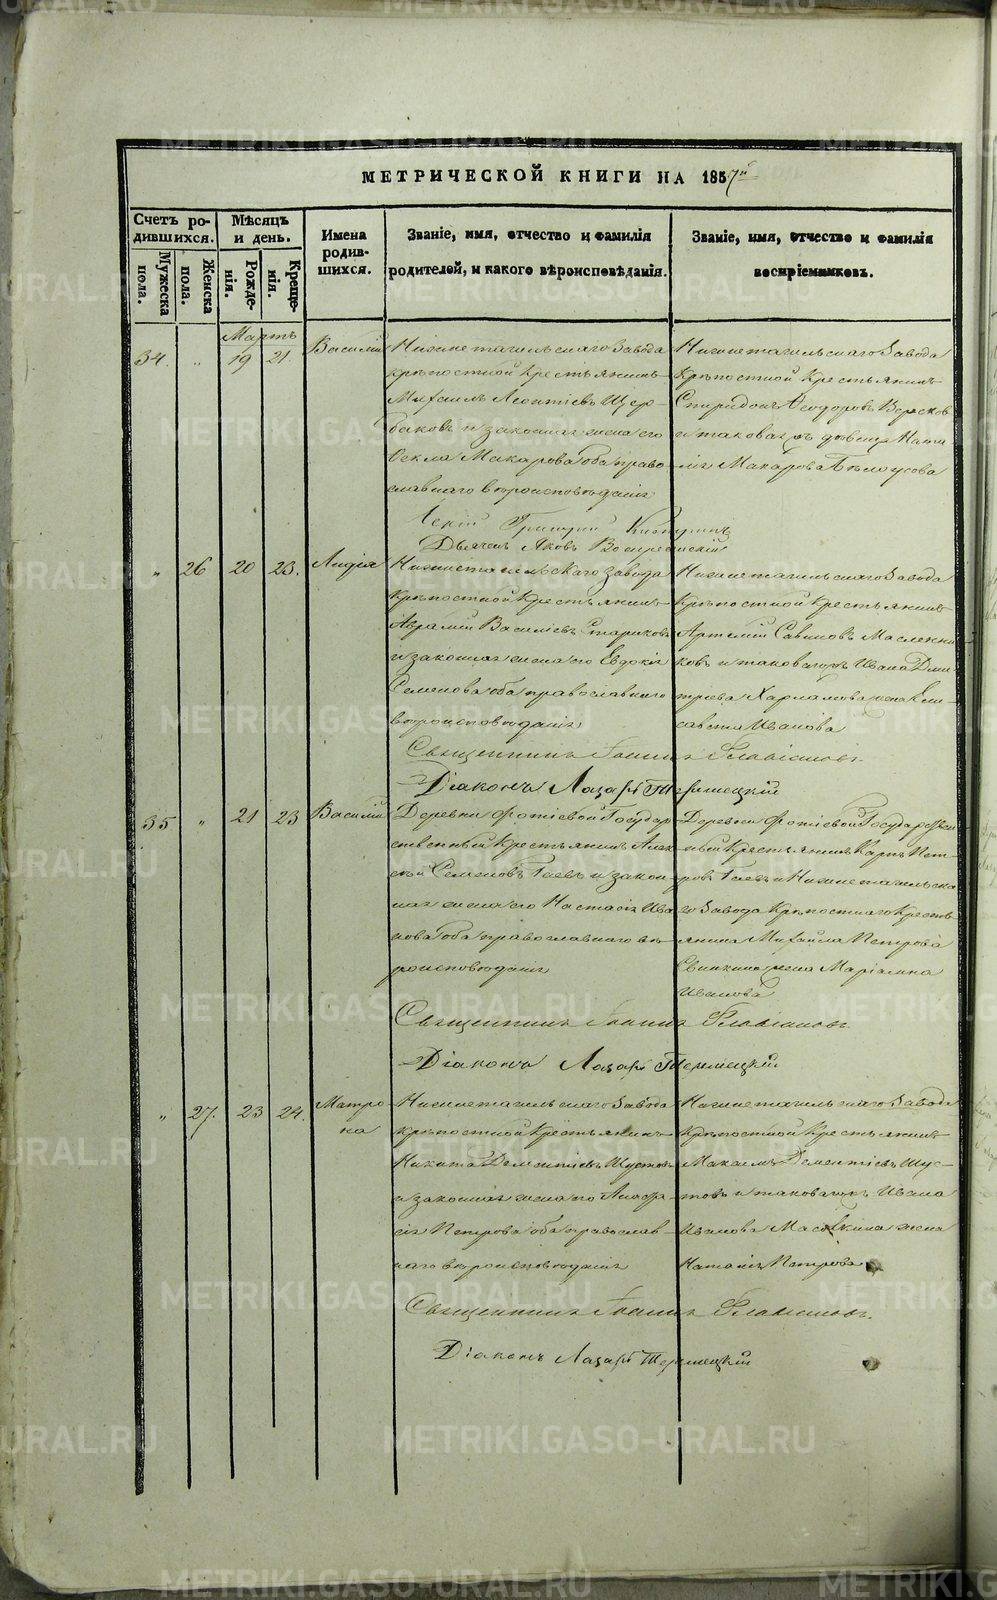 МЕТРИЧЕСКОЙ КНИГИ НА 1857й
Счетъ ро-
дившихся.
Мужеска
пола.
Женска
пола.
Мѣсяцъ
и день.
Рожде-
нія.
Креще-
нія.
Имена
родив-
шихся.
Званіе, имя, отчество и фамилія
родителей, и какого вѣроисповѣданія.
Званіе, имя, отчество и фамилія
воспріемниковъ.
Мартъ
34. " 19 21. Василій
Нижнетагильскаго Завода
крѣпостной крестьянинъ
Михаилъ Леонтіевъ Щер-
баковъ и законная жена его
Ѳекла Макарова оба право-
славнаго вѣроисповѣданія
Нижнетагильскаго Завода
Крѣпостной Крестьянинъ
Спиридонъ Ѳеодоровъ
и таковагожъ дѣвица
Макарова Бѣлоусова
Іерей Григорій
Дьячекъ Яковъ Воскресенскій
" 26 20 23. Лидія
Нижнетагильскаго завода
крѣпостной Крестьянинъ
Аврамій Василіевъ Стариковъ
и законная жена его Евдокія
Семенова оба православнаго
вѣроисповѣданія
Нижнетагильскаго Завода
Крѣпостной Крестьянинъ
Артемій Савиновъ Масленни-
ковъ и таковагожъ Ивана Дми-
тріева Харламова жена Ели-
савета Иванова
Священникъ Іоаннъ Флавіановъ
Діаконъ Лазарь
35 " 21 23 Василій
Деревни Фотіевой Государ-
ственный Крестьянинъ Алек-
сѣй Семеновъ Гаевъ и закон-
ная жена его Настасія Ива-
нова оба православнаго вѣ-
роисповѣданія
Деревни Фотіевой Государствен-
ный Крестьянинъ Карпъ Пет-
ровъ Гаевъ и Нижнетагильска-
го Завода Крѣпостнаго Кресть-
янина Михайла Петрова
Свинкина жена Маріамна
Иванова
Священникъ Іоаннъ Флавіановъ
Діаконъ Лазарь
" 27. 23 24. Матро
на
Нижнетагильскаго Завода
крѣпостной Крестьянинъ
Никита Дементіевъ Шустовъ
и законная жена его Анафи-
сія Петрова оба православ-
наго вѣроисповѣданія
Нижнетагильскаго Завода
Крѣпостной Крестьянинъ
Максимъ Дементіевъ Шус-
товъ и таковагожъ Ивана
Иванова жена
Наталія Петрова
Священникъ Іоаннъ Флавіановъ
Діаконъ Лазарь
METRIKI.GASO-URAL.RU